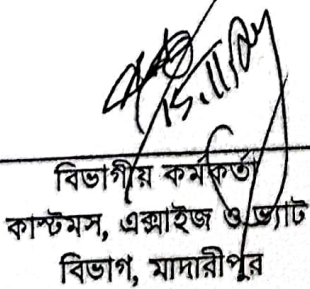 বিভাগীয় কর্মকর্তা
কাস্টমস, এক্সাইজ ও ভ্যাট
বিভাগ, মাদারীপুর